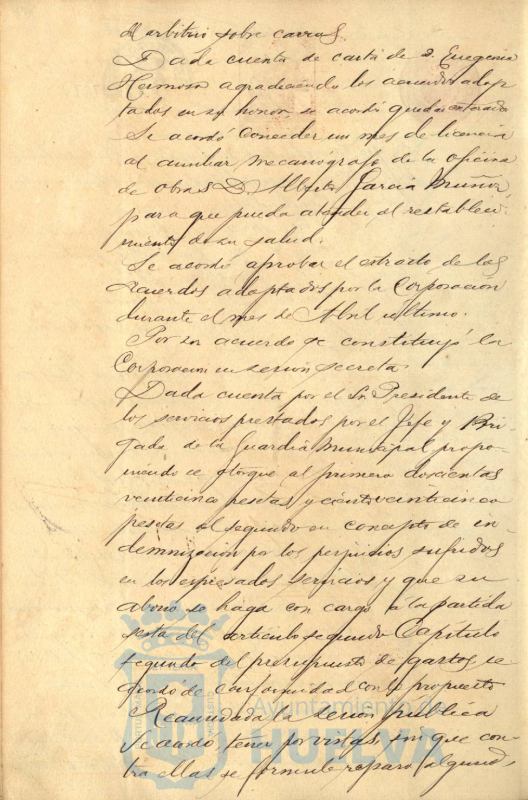 arbitrio sobre carros.
Dada cuenta de carta de D. Eugenio
Hermoso agradeciendo los acuerdos adop
tados en su honor se acordó quedar enterado
Se acordó conceder un mes de licencia
al auxiliar mecanógrafo de la oficina
de obras D. Alberto García Muñoz,
para que pueda atender al restableci-
miento de su salud.
Se acordó aprobar el extracto de los
acuerdos adoptados por la Corporación
durante el mes de Abril último.
Por su acuerdo se constituyó la
Corporacion en sesión secreta.
Dada cuenta por el Sr. Presidente de
los servicios prestados por el Jefe y Bri
gada de la Guardia Municipal propo-
niendo se otorgue al primero doscientas
veinticinco pesetas y ciento veinticinco
pesetas al segundo en concepto de in-
demnización por los perjuicios sufridos
en los expresados servicios y que su
abono se haga con cargo á la partida
sesta del artículo segundo Capítulo
segundo del presupuesto de gastos se
acordó de conformidad con lo propuesto
Reanudada la sesión pública
Se acordó tener por vistas, sin que con-
tra ellas se formule reparo alguno,
Ayuntamiento de
HUELVA